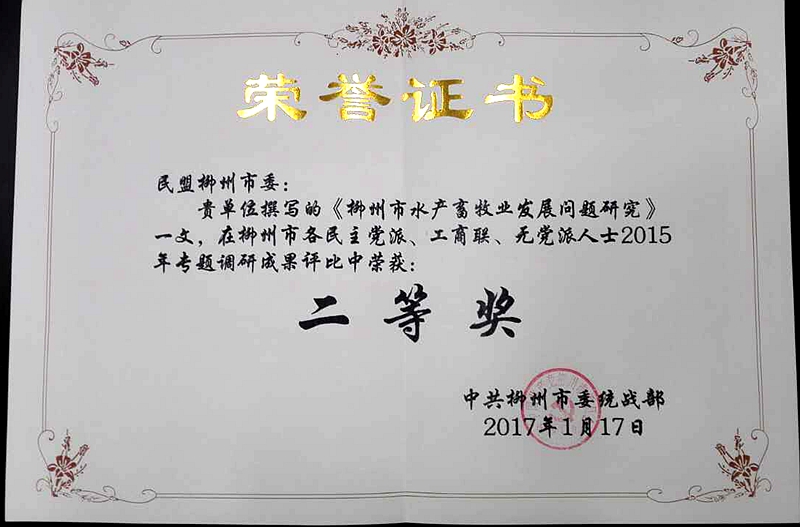 荣誉证书
民盟柳州市委：
贵单位撰写的《柳州市水产畜牧业发展问题研究》
一文，在柳州市各民主党派、工商联、无党派人士2015
年专题调研成果评比中荣获：
二等奖
中共柳州市委统战部
2017年1月17日